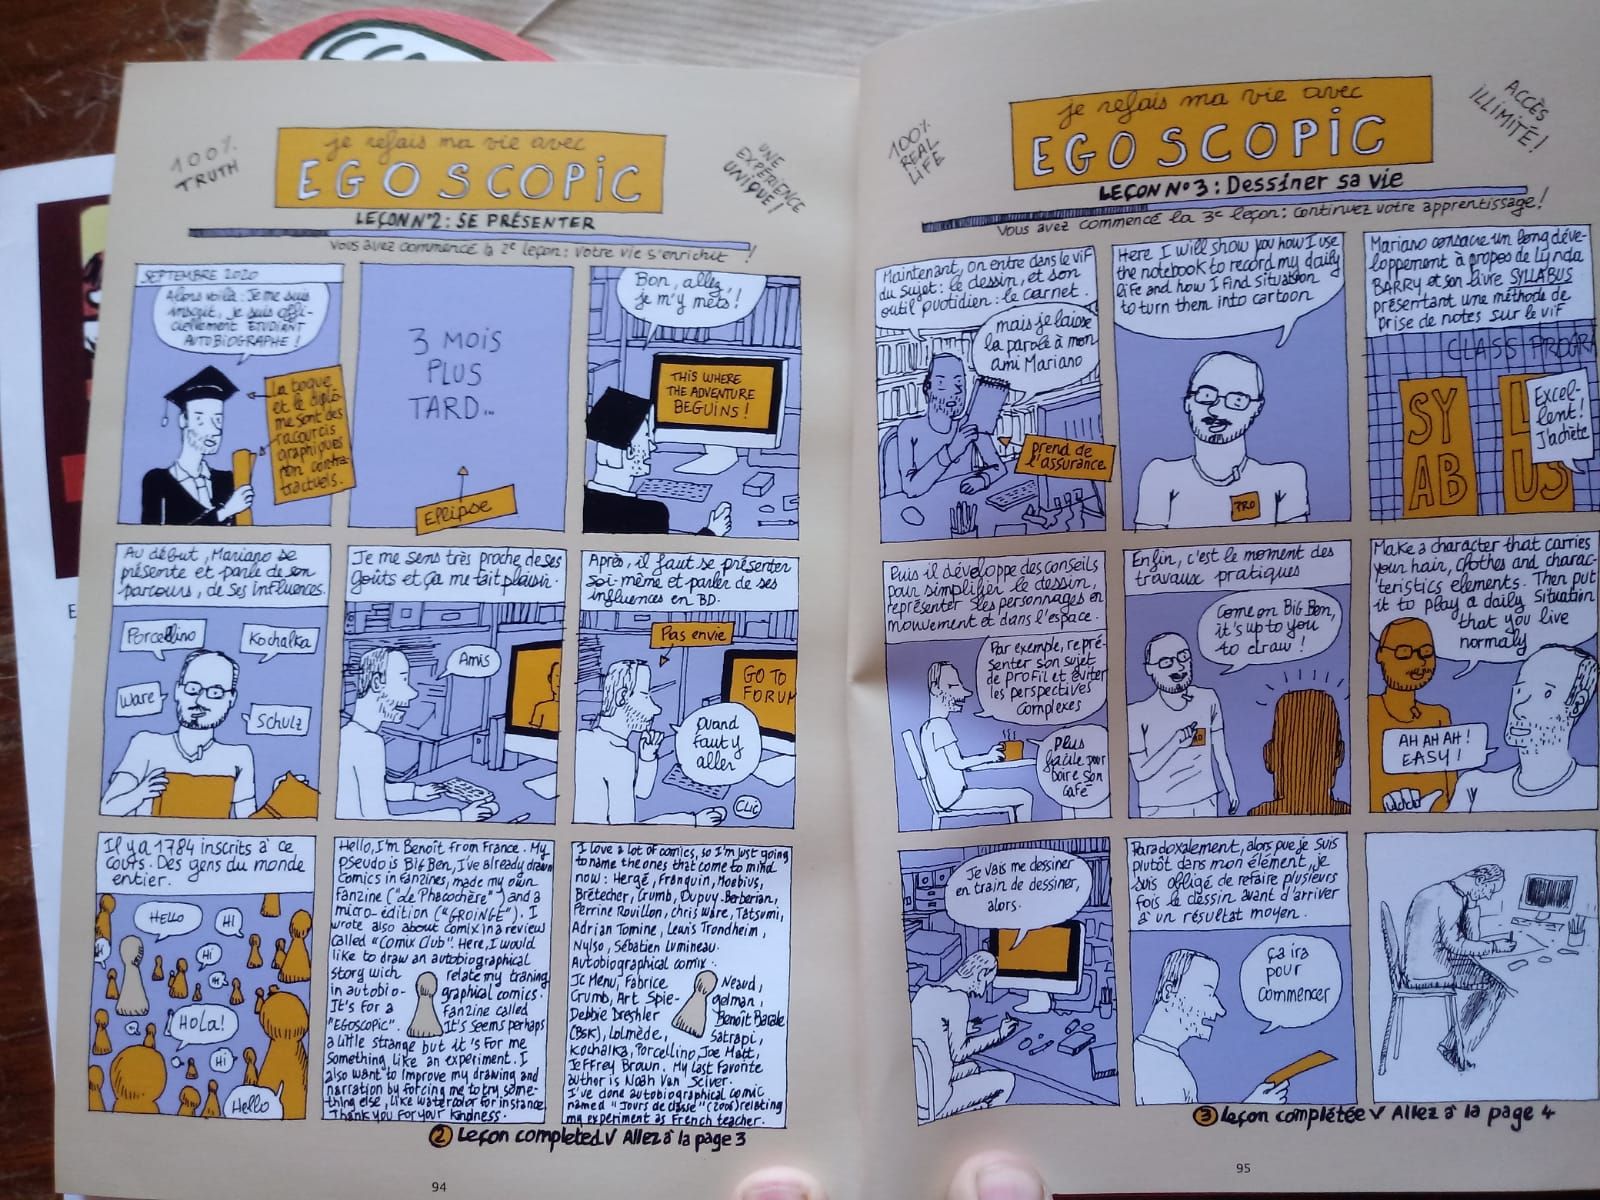 100% TRUTH
je refais ma vie avec
EGOSCOPIC
UNE EXPÉRIENCE UNIQUE!
LEÇON N°2: SE PRÉSENTER
Vous avez commencé la 2e leçon: votre vie s'enrichit !
SEPTEMBRE 2020
Alors voilà: Je me suis
inscrit, je suis offi-
ciellement ETUDIANT
AUTOBIOGRAPHE !
La toque
et le diplô-
me sont des
racourcis
graphiques
non contra-
tuels.
3 MOIS
PLUS
TARD...
Ellipse
Bon, allez,
je m'y mets !
THIS WHERE
THE ADVENTURE
BEGUINS !
Au début, Mariano se
présente et parle de son
parcours, de ses influences.
Porcellino
Kochalka
Ware
Schulz
Je me sens très proche de ses
goûts et ça me fait plaisir.
Amis
Après, il faut se présenter
soi-même et parler de ses
influences en BD.
Pas envie
GO TO
FORUM
Quand
faut y
aller
CLIC
Il y a 1784 inscrits à ce
cours. Des gens du monde
entier.
HELLO
Hi
Hi
Hi
HOLA!
Hi
Hello
Hello, I'm Benoît from France. My
pseudo is Big Ben, I've already drawn
Comics in fanzines, made my own
Fanzine ("Le Phacochère") and a
micro-édition ("GROINGE"). I
wrote also about comix in a review
called "Comix Club". Here, I would
like to draw an autobiographical
story wich relate my traning
in autobio- graphical comics.
It's for a fanzine called
"EGOSCOPIC". It's seems perhaps
a little strange but it's for me
something like an experiment. I
also want to improve my drawing and
narration by forcing me to try some-
thing else, like watercolor for instance.
Thank you for your kindness.
I love a lot of comics, so I'm just going
to name the ones that come to mind
now: Hergé, Franquin, Moebius,
Brétecher, Crumb, Dupuy-Berberian,
Perrine Rouillon, chris Ware, Tatsumi,
Adrian Tomine, Lewis Trondheim,
Nylso, Sébatien Lumineau.
Autobiographical comix:
Jc Menu, Fabrice Neaud,
Crumb, Art Spie- gelman,
Debbie Dreshler Benoît Barale
(BSK), Lolmède, Satrapi,
Kochalka, Porcellino, Joe Matt,
Jeffrey Brown. My last favorite
author is Noah Van Sciver.
I've done autobiographical comic
named "Jours de classe" (2006) relating
my experiment as French teacher.
② Leçon completed √ Allez à la page 3
94
100% REAL LIFE
je refais ma vie avec
EGOSCOPIC
ACCÈS ILLIMITÉ!
LEÇON N°3: Dessiner sa vie
Vous avez commencé la 3e leçon: continuez votre apprentissage!
Maintenant, on entre dans le vif
du sujet: le dessin, et son
outil quotidien: le carnet.
mais je laisse
la parole à mon
ami Mariano
prend de
l'assurance.
Here I will show you how I use
the notebook to record my daily
life and how I find situation
to turn them into cartoon
PRO
Mariano consacre un long déve-
loppement à propos de Lynda
BARRY et son livre SYLLABUS
présentant une méthode de
prise de notes sur le vif
CLASS PROGRA
SY
AB
L
US
Excel-
lent!
J'achète
Puis il développe des conseils
pour simplifier le dessin,
représenter les personnages en
mouvement et dans l'espace.
Par exemple, repré-
senter son sujet
de profil et éviter
les perspectives
complexes
Plus
facile pour
boire son
café
Enfin, c'est le moment des
travaux pratiques
Come on Big Ben,
it's up to you
to draw !
Make a character that carries
your hair, clothes and charac-
teristics elements. Then put
it to play a daily situation
that you live
normaly
AH AH AH !
EASY !
Je vais me dessiner
en train de dessiner,
alors.
Paradoxalement, alors que je suis
plutôt dans mon élément, je
suis obligé de refaire plusieurs
fois le dessin avant d'arriver
à un résultat moyen.
ça ira
pour
commencer
③ Leçon complétée √ Allez à la page 4
95